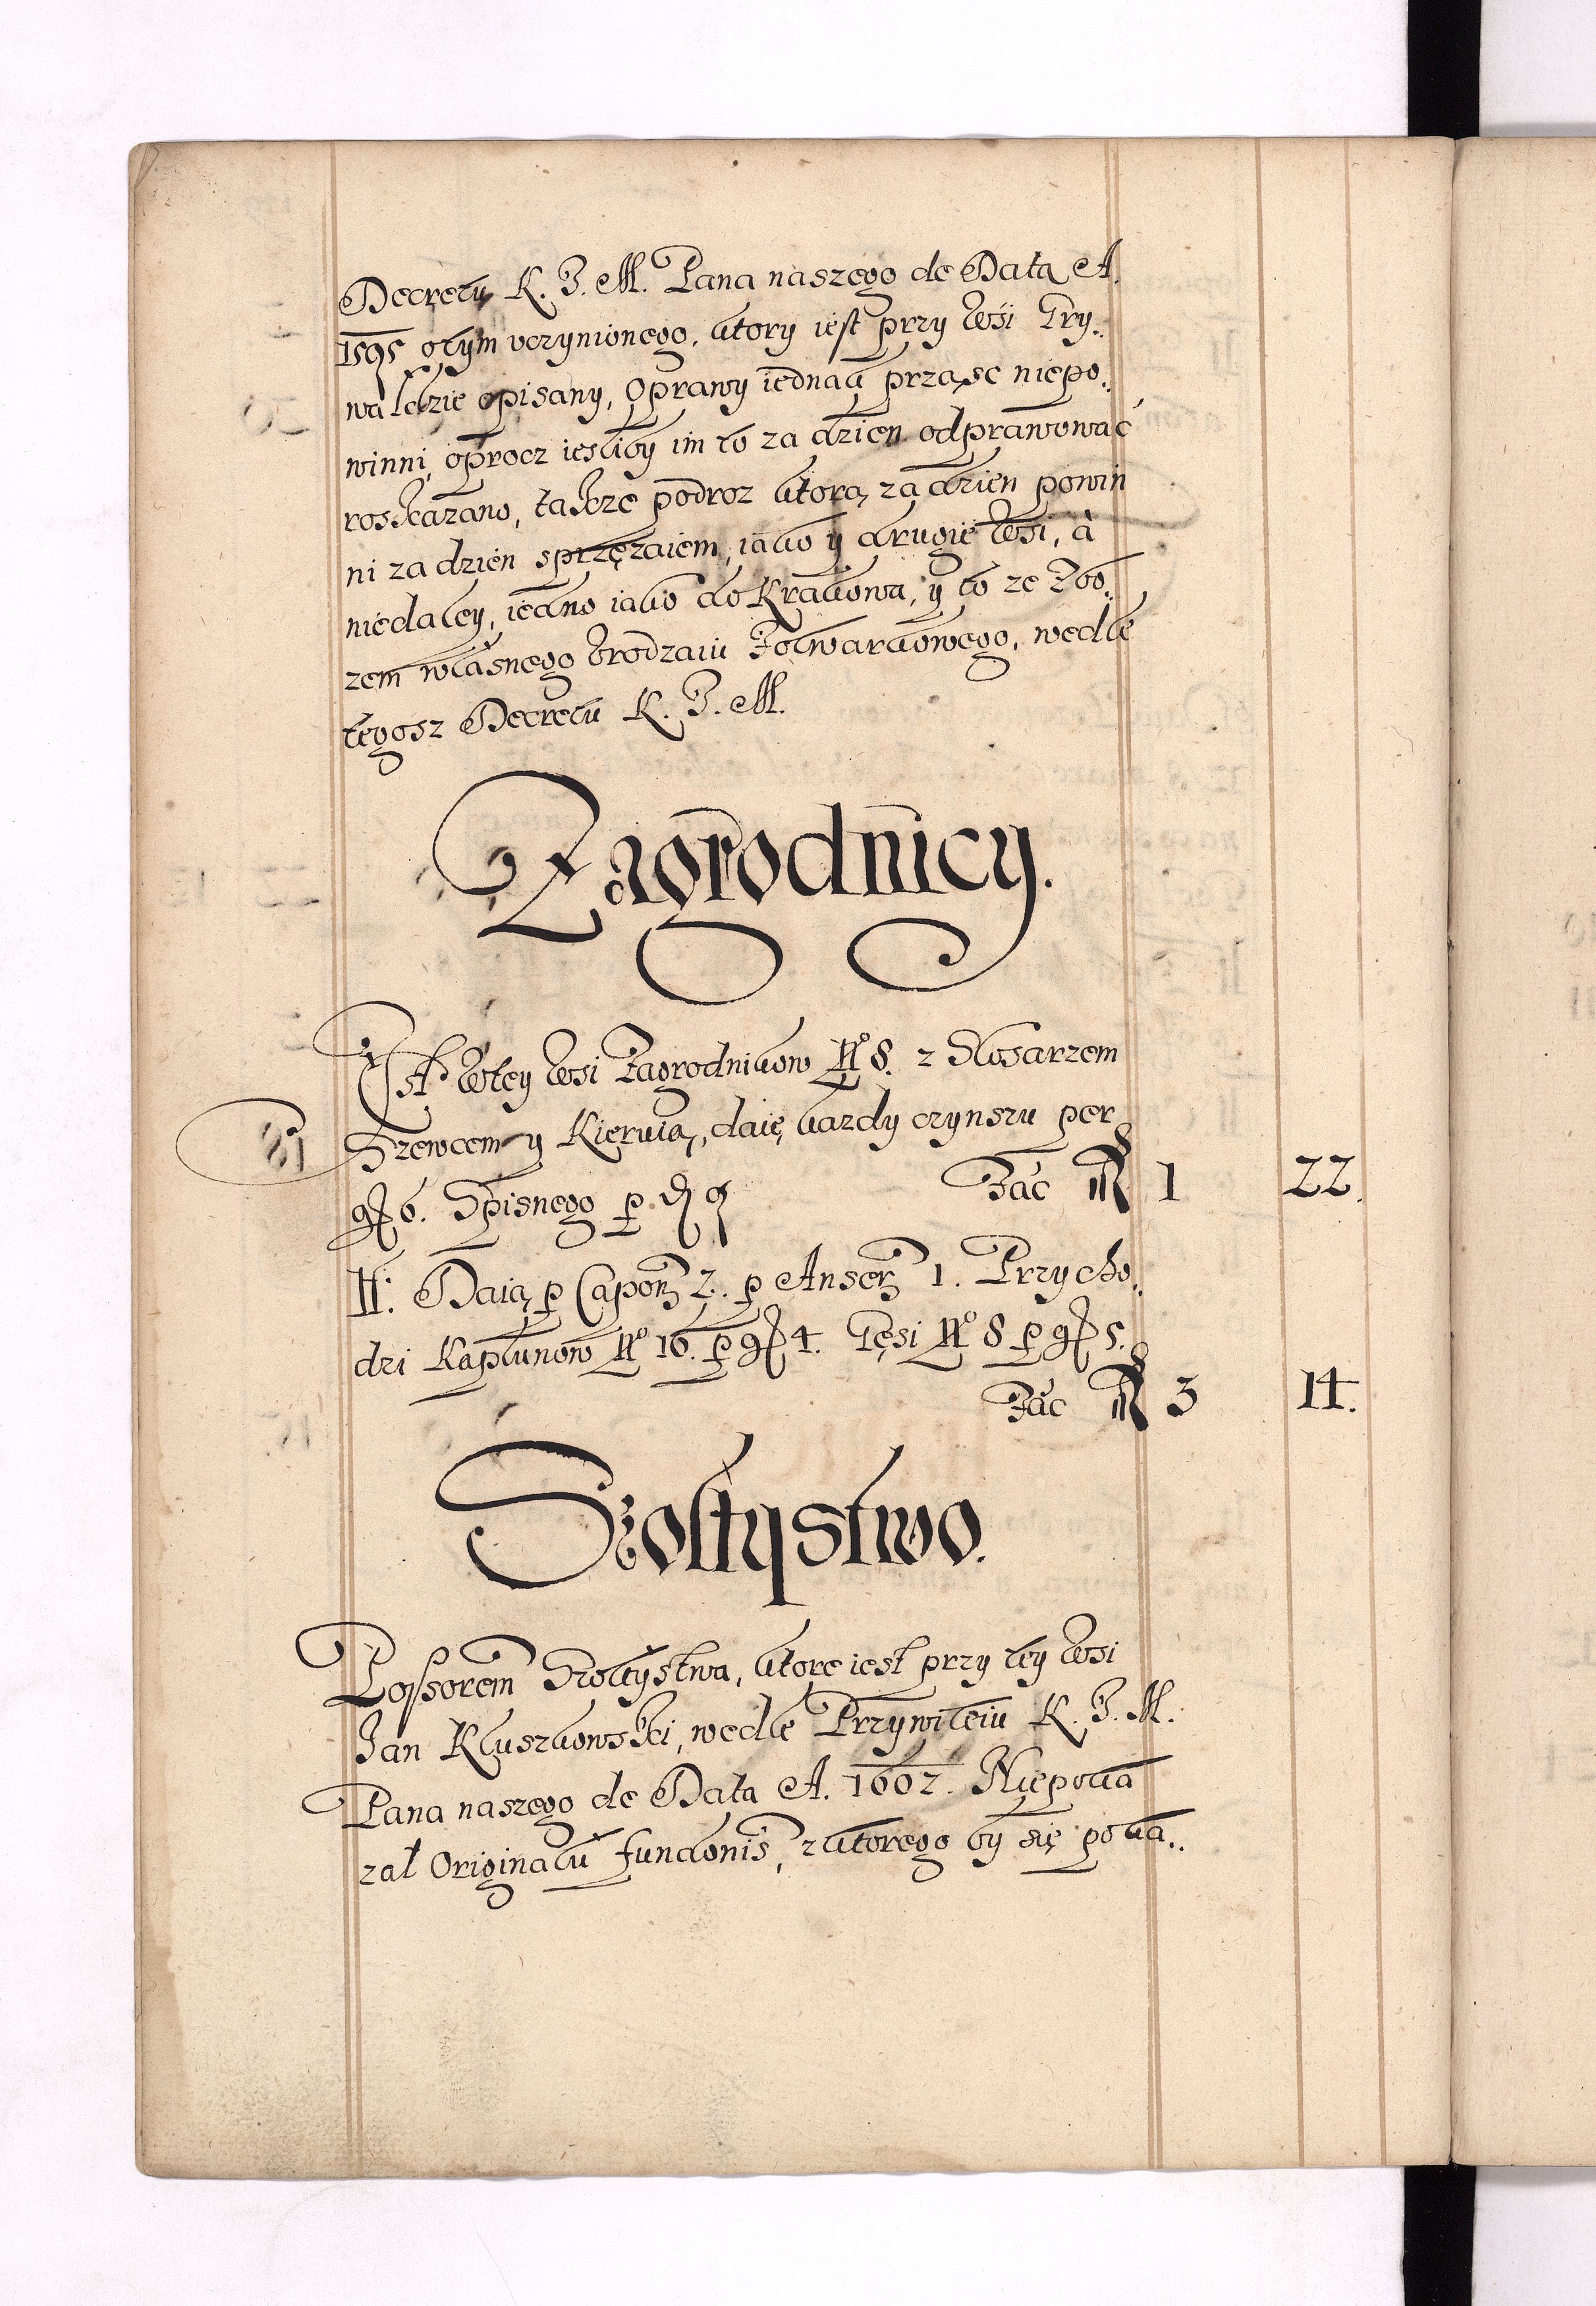 Decretu K. J. M. Pana naszego de Data A.
1595 otym uczynionego, ktory iest przy wsi Gry„
waldzie opisany, Oprawy iednak prząsc niepo„
winni, oprocz iesliby im to za dzien odprawować
roskazano, także podroz ktorą za dzien powin
ni za dzien sprzęzaiem, iako y drugie wsi, à
niedaley, iedno iako do Krakowa, y to ze zbo„
zem własnego urodzaiu Folwarkowego, wedle
tegosz Decretu K. J. M.
Zagrodnicy.
Jest wtey wsi Zagrodnikow No 8. z Slosarzem
Szewcem y Kieruią, daię kazdy czynszu per
g 6. Spisnego p d 9 Fac m 1 22.
It: Daią p Capon 2. p Anser 1. Przycho„
dzi Kapłunow No 16. p g 4. Gęsi No 8 p g 5.
Fac m 3 14.
Szołtystwo.
Possorem Szołtystwa, ktore iest przy tey wsi
Jan Kluszkowski, wedle Przywileiu K. J. M.
Pana naszego de Data A. 1602. Niepoka
zał Originału fundonis, z ktorego by się poka„